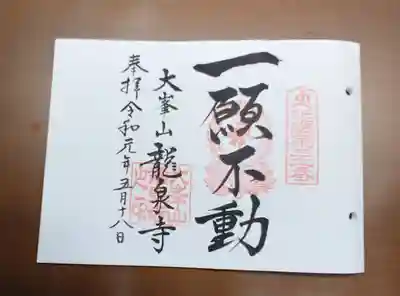 一願不動
大峯山龍泉寺
奉拝令和元年五月十八日